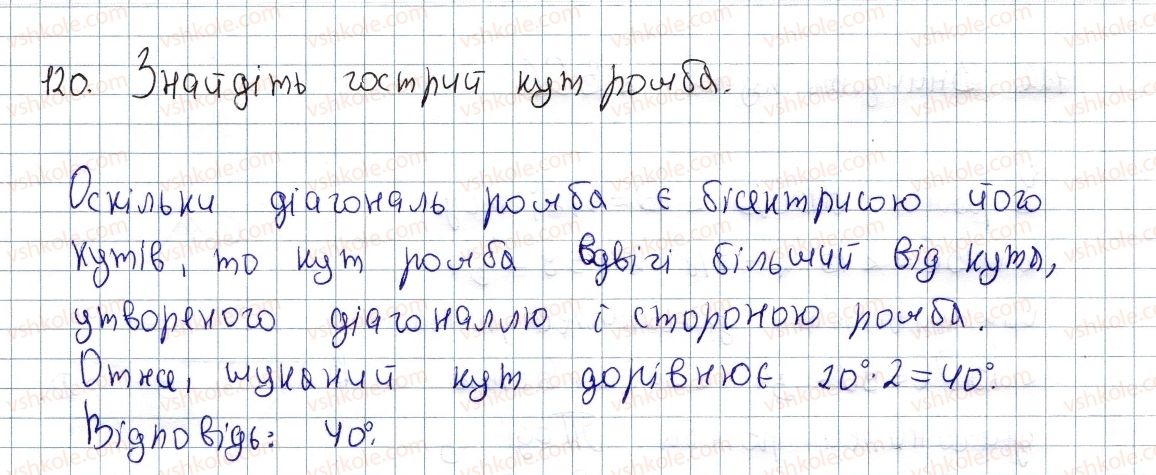 120. Знайдіть гострий кут ромба.
Оскільки діагональ ромба є бісектрисою його
кутів, то кут ромба вдвічі більший від кута,
утвореного діагоналлю і стороною ромба.
Отже, шуканий кут дорівнює 20°·2=40°.
Відповідь: 40°.